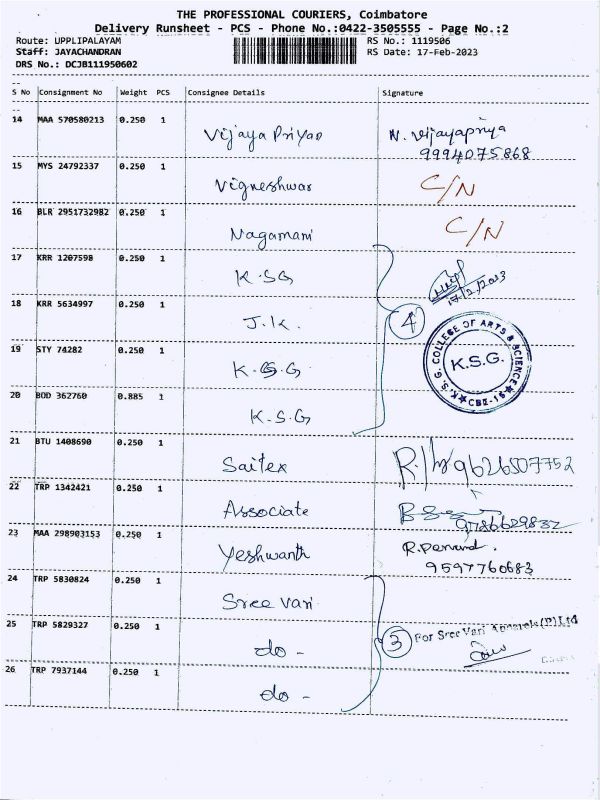 THE PROFESSIONAL COURIERS, Coimbatore
Delivery Runsheet - PCS - Phone No.:0422-3505555 - Page No.:2
Route: UPPLIPALAYAM RS No.: 1119506
Staff: JAYACHANDRAN RS Date: 17-Feb-2023
DRS No.: DCJB111950602
S No Consignment No Weight PCS Consignee Details Signature
14 MAA 570580213 0.250 1 Vijaya Priyao N. Vijayapriya
9994075868
15 MYS 24792337 0.250 1 Vigneshwar C/N
16 BLR 2951732982 0.250 1 Nagamani C/N
17 KRR 1207598 0.250 1 K.SG 17/2/2023
18 KRR 5634997 0.250 1 J.K. 4
19 STY 74282 0.250 1 K.G.G K.S.G. COLLEGE OF ARTS & SCIENCE K.S.G. CBE-15
20 BOD 362760 0.885 1 K.S.G
21 BTU 1408690 0.250 1 Saitex 9626507752
22 TRP 1342421 0.250 1 Associate 9786629832
23 MAA 298903153 0.250 1 Yeshwanth
9597760683
24 TRP 5830824 0.250 1 Sree Vari
25 TRP 5829327 0.250 1 do - 3 For Sree Vari Apparels (P) Ltd
26 TRP 7937144 0.250 1 do -